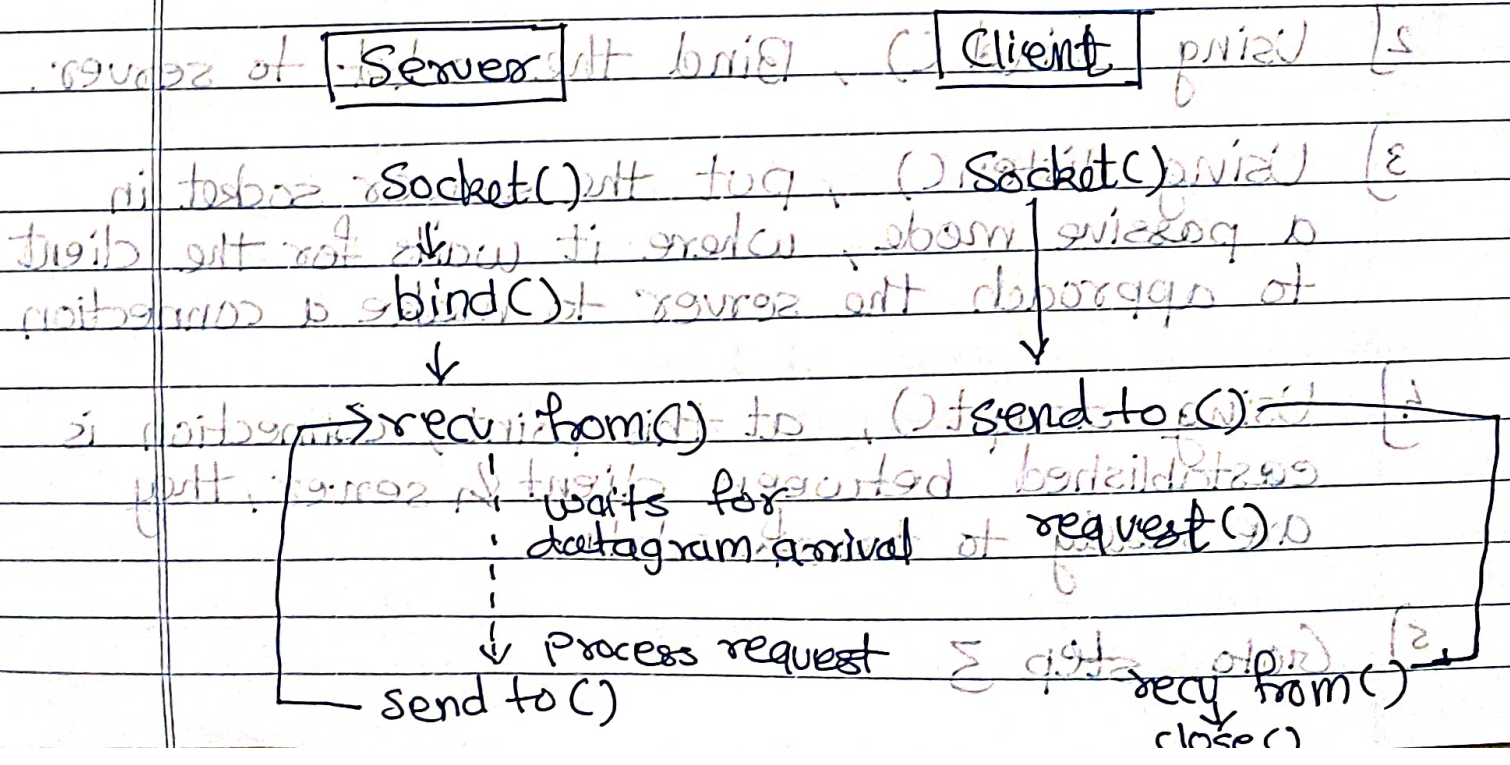 Server Client
Socket() Socket()
bind()
recv from() send to()
waits for
datagram arrival request()
process request
send to() recv from()
close()